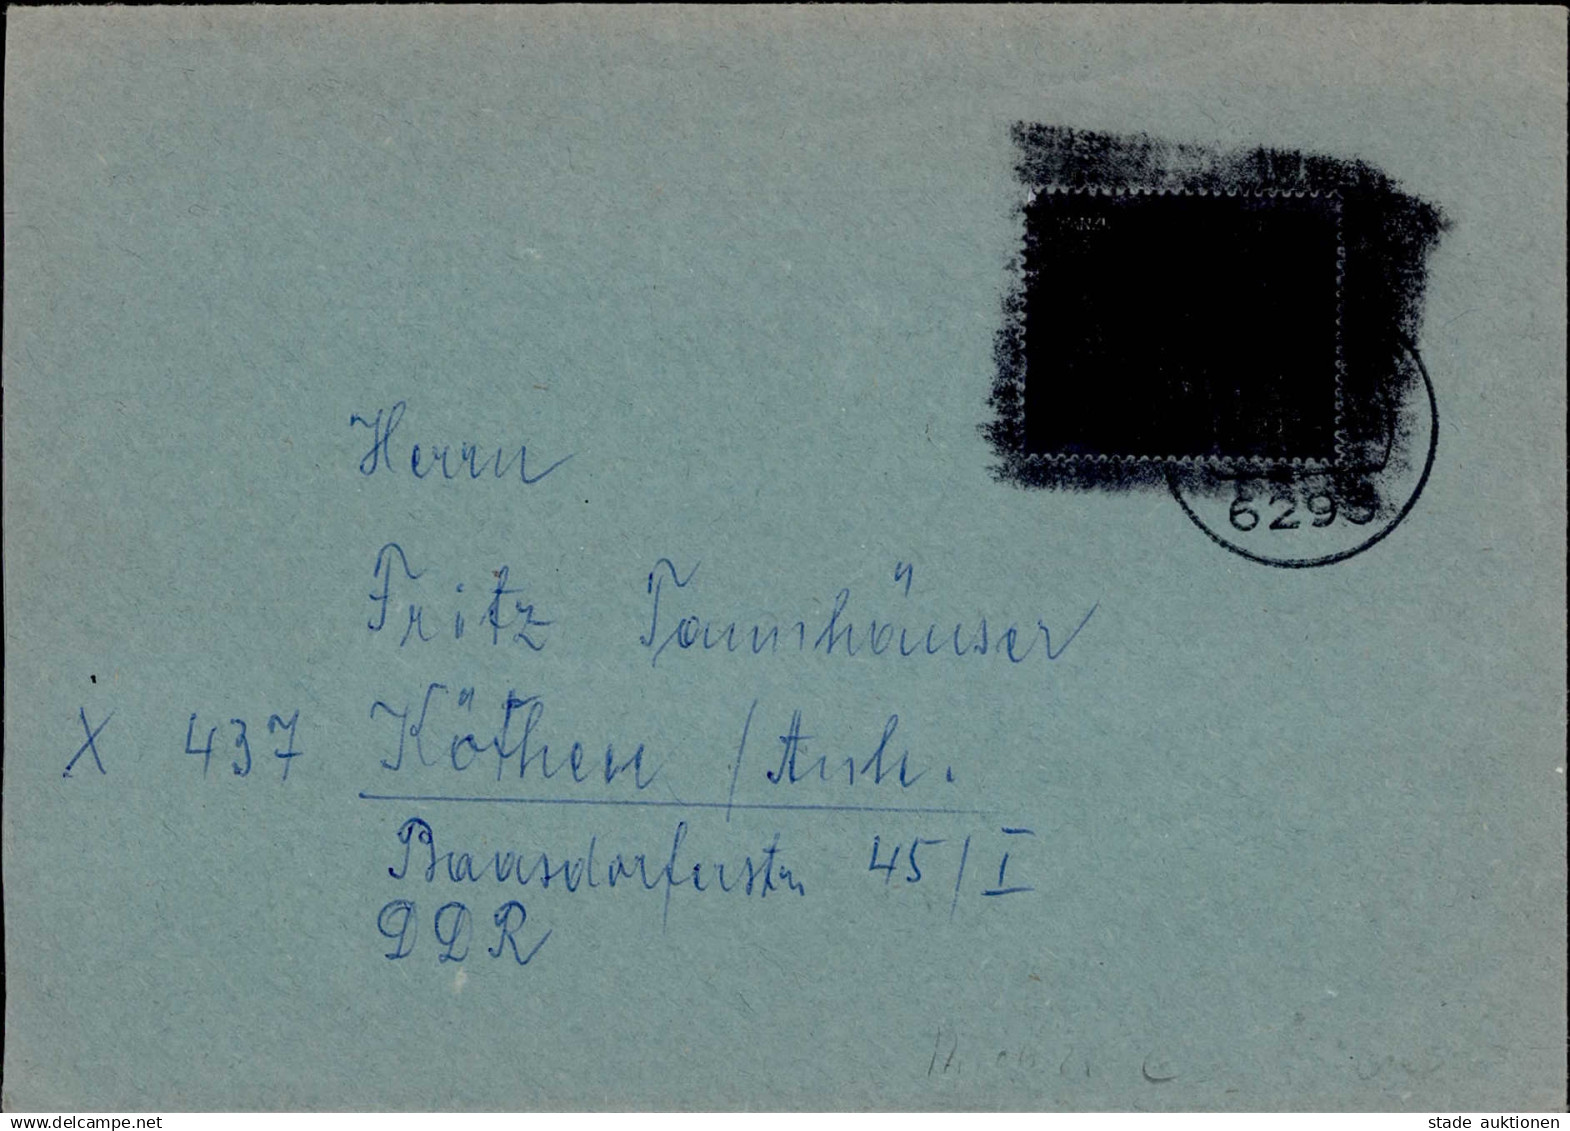 6293
Herrn
Fritz Tannhäuser
X 437 Köthen / Anh.
Baasdorferstr. 45 / I
DDR
www.delcampe.net
stade auktionen